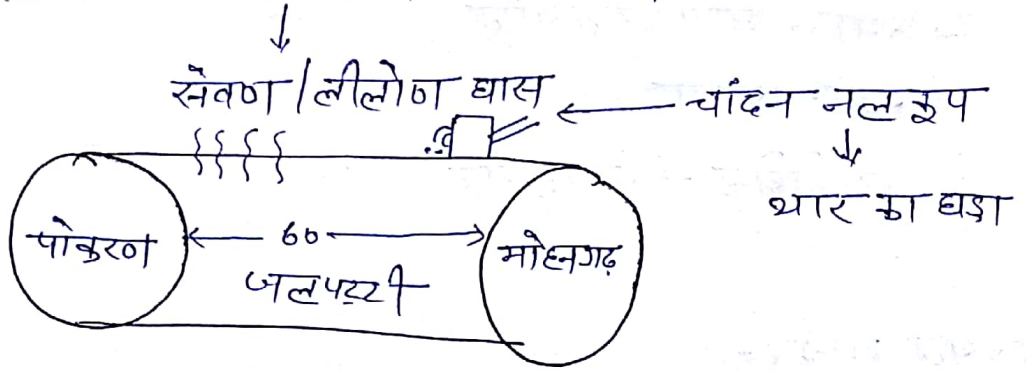 ↓
सेवण / लीलोण घास ← चांदन नलकूप
↓
थार का घड़ा
पोकरण ← 60 → मोहनगढ़
जलपट्टी